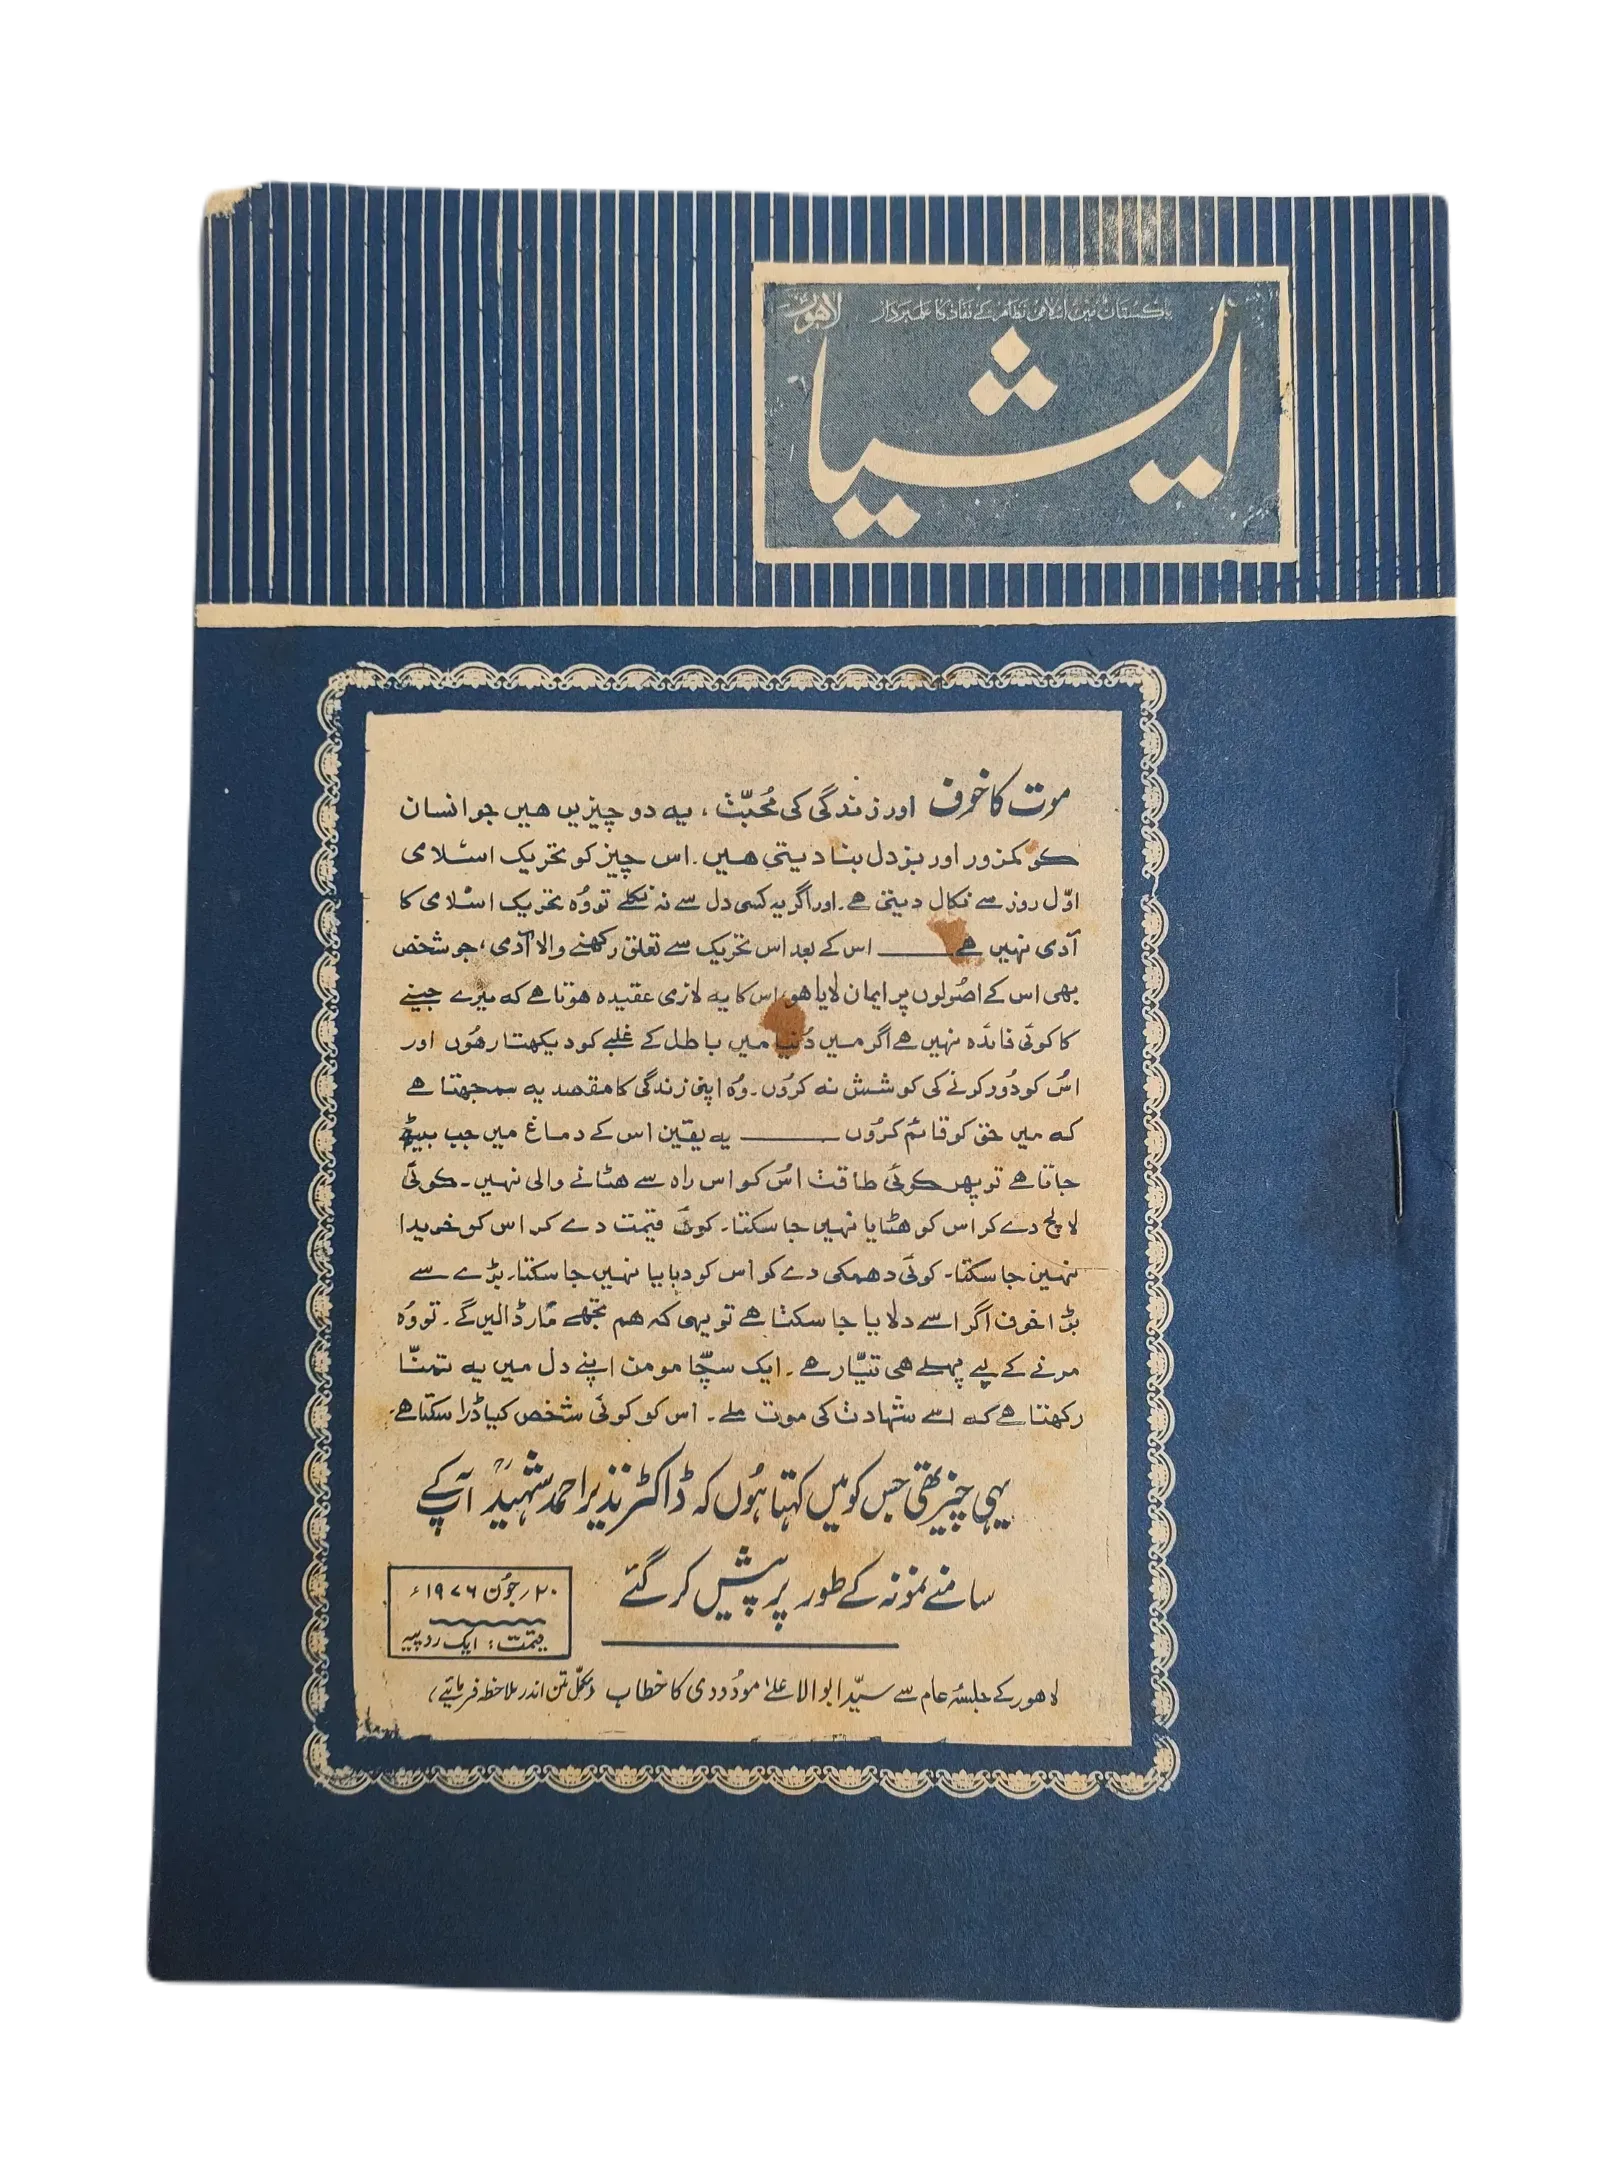 پاکستان میں اسلامی نظام کے نفاذ کا علمبردار
لاہور
ایشیا
موت کا خوف اور زندگی کی مُحبّت ، یہ دو چیزیں ہیں جو انسان
کو کمزور اور بزدل بنا دیتی ہیں ۔ اس چیز کو تحریک اسلامی
اوّل روز سے نکال دیتی ہے ۔ اور اگر یہ کسی دل سے نہ نکلے تو وُہ تحریک اسلامی کا
آدمی نہیں ہے ــــــ اس کے بعد اس تحریک سے تعلق رکھنے والا آدمی ، جو شخص
بھی اس کے اصُولوں پر ایمان لایا ہو، اس کا یہ لازمی عقیدہ ہوتا ہے کہ میرے جینے
کا کوئی فائدہ نہیں ہے اگر میں دُنیا میں باطل کے غلبے کو دیکھتا رہُوں اور
اسُ کو دُور کرنے کی کوشش نہ کروُں ۔ وُہ اپنی زندگی کا مقصد یہ سمجھتا ہے
کہ میں حق کو قائم کروُں ــــــ یہ یقین اس کے دماغ میں جب بیٹھ
جاتا ہے تو پھر کوئی طاقت اسُ کو اس راہ سے ہٹانے والی نہیں ۔ کوئی
لالچ دے کر اس کو ہٹایا نہیں جا سکتا ۔ کوئی قیمت دے کر اس کو خریدا
نہیں جا سکتا ۔ کوئی دھمکی دے کو اس کو دبایا نہیں جا سکتا ۔ بڑے سے
بڑا خوف اگر اسے دلایا جا سکتا ہے تو یہی کہ ہم تجھے مار ڈالیں گے ۔ تو وُہ
مرنے کے لیے پہلے ہی تیّار ہے ۔ ایک سچّا مومن اپنے دل میں یہ تمنّا
رکھتا ہے کہ اسے شہادت کی موت ملے ۔ اس کو کوئی شخص کیا ڈرا سکتا ہے ۔
یہی چیز تھی جس کو میں کہتا ہُوں کہ ڈاکٹر نذیر احمد شہیدؒ آپ کے
سامنے نمونہ کے طور پر پیش کر گئے
۲۰ ؍ جوُن ۱۹۷۶ ء
قیمت : ایک روپیہ
لاہور کے جلسۂ عام سے سیّد ابوالاعلیٰ موُدودی کا خطاب (مکمّل متن اندر ملاحظہ فرمائیے)